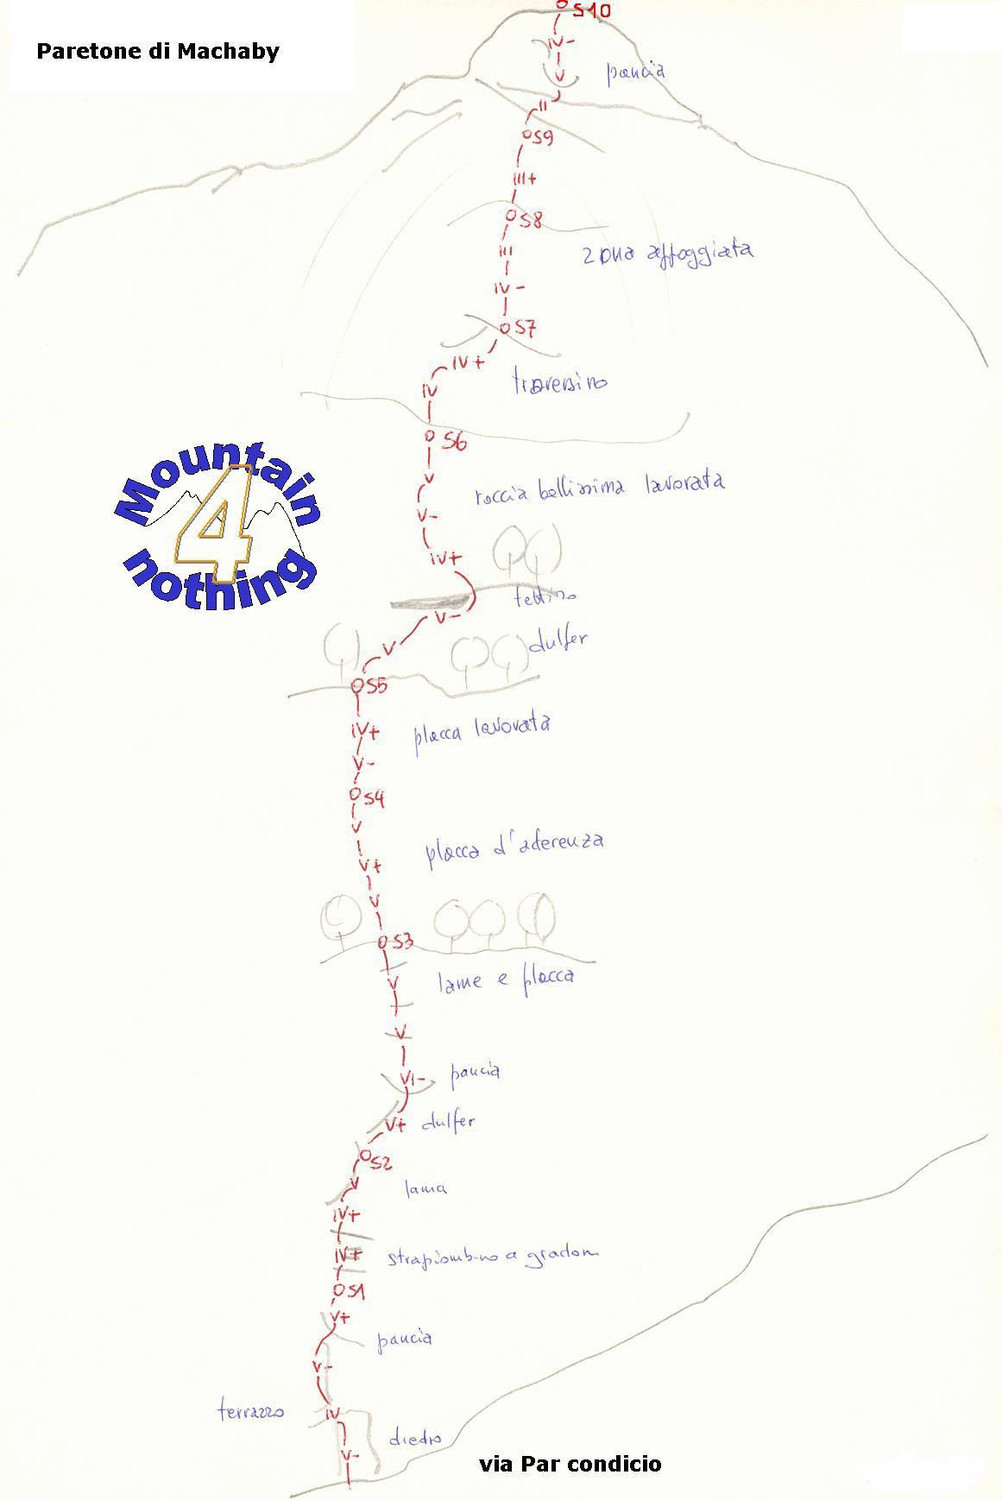 S10
Paretone di Machaby
IV-
V
pancia
II
S9
III+
S8
III
zona appoggiata
IV-
S7
IV+
traversino
IV
S6
V
roccia bellissima lavorata
V-
IV+
Mountain
4
nothing
tettino
V-
dulfer
V
S5
IV+
placca lavorata
V-
S4
V
placca d'aderenza
V+
V
S3
lame e placca
V
V
VI-
pancia
V+
dulfer
S2
V
lama
IV+
IV+
strapiombino a gradoni
S1
V+
pancia
V-
terrazzo
IV
diedro
V-
via Par condicio